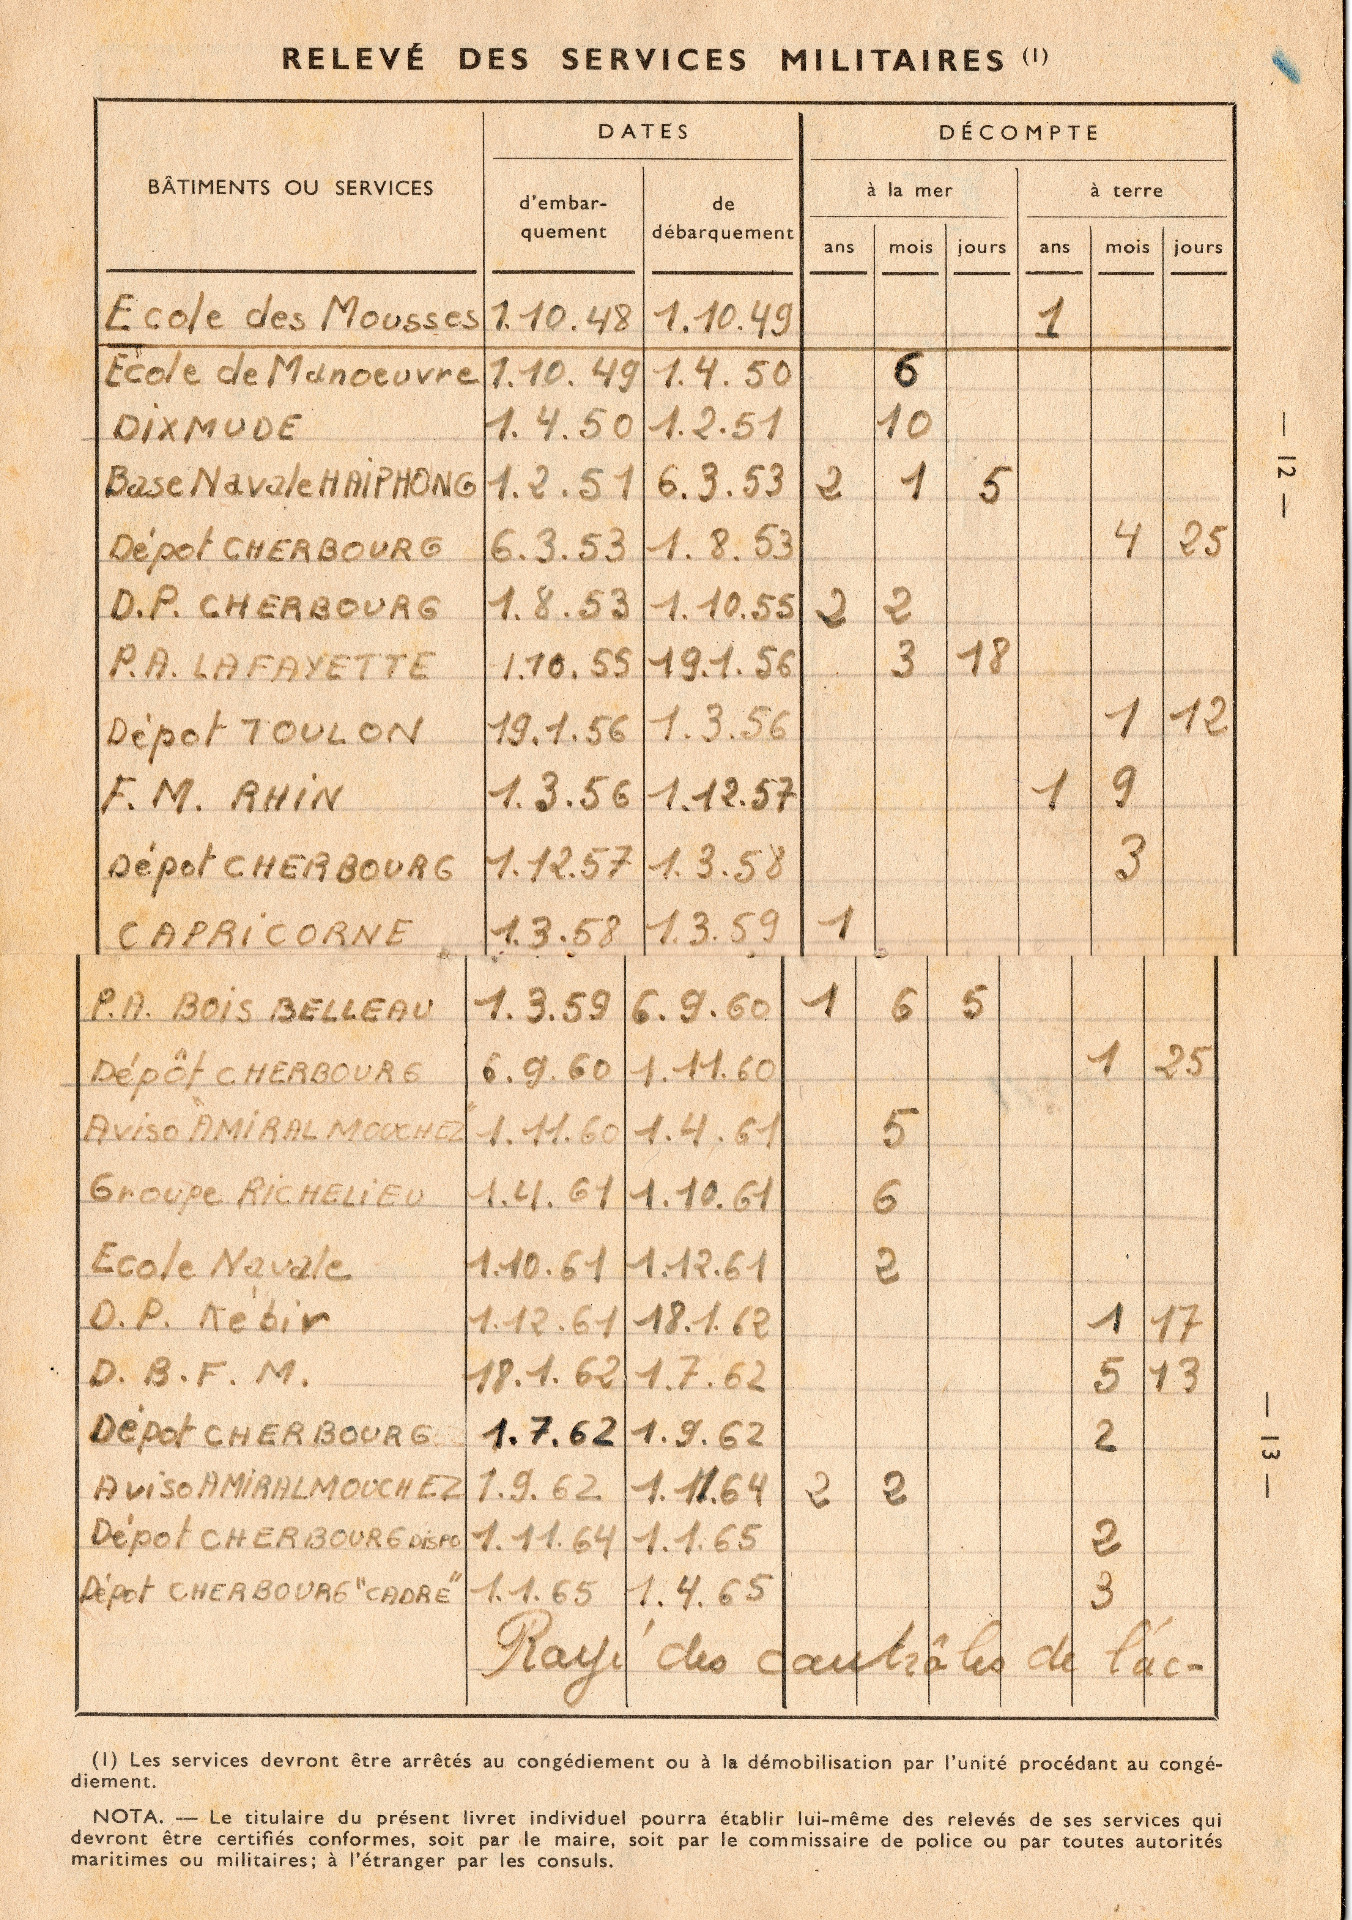 RELEVÉ DES SERVICES MILITAIRES (1)
BÂTIMENTS OU SERVICES DATES DÉCOMPTE
d'embar- de à la mer à terre
quement débarquement ans mois jours ans mois jours
Ecole des Mousses 1.10.48 1.10.49 1
Ecole de Manoeuvre 1.10.49 1.4.50 6
DIXMUDE 1.4.50 1.2.51 10
Base Navale HAIPHONG 1.2.51 6.3.53 2 1 5
Dépot CHERBOURG 6.3.53 1.8.53 4 25
D.P. CHERBOURG 1.8.53 1.10.55 2 2
P.A. LAFAYETTE 1.10.55 19.1.56 3 18
Dépot TOULON 19.1.56 1.3.56 1 12
F.M. RHIN 1.3.56 1.12.57 1 9
Dépot CHERBOURG 1.12.57 1.3.58 3
CAPRICORNE 1.3.58 1.3.59 1
— 12 —
P.A. BOIS BELLEAU 1.3.59 6.9.60 1 6 5
Dépôt CHERBOURG 6.9.60 1.11.60 1 25
Aviso "AMIRAL MOUCHEZ" 1.11.60 1.4.61 5
Groupe RICHELIEU 1.4.61 1.10.61 6
Ecole Navale 1.10.61 1.12.61 2
D.P. Kébir 1.12.61 18.1.62 1 17
D.B.F.M. 18.1.62 1.7.62 5 13
Dépot CHERBOURG 1.7.62 1.9.62 2
Aviso AMIRAL MOUCHEZ 1.9.62 1.11.64 2 2
Dépot CHERBOURG DISPO 1.11.64 1.1.65 2
Dépot CHERBOURG "CADRE" 1.1.65 1.4.65 3
Rayé des contrôles de l'ac-
— 13 —
(1) Les services devront être arrêtés au congédiement ou à la démobilisation par l'unité procédant au congé-
diement.
NOTA. — Le titulaire du présent livret individuel pourra établir lui-même des relevés de ses services qui
devront être certifiés conformes, soit par le maire, soit par le commissaire de police ou par toutes autorités
maritimes ou militaires; à l'étranger par les consuls.